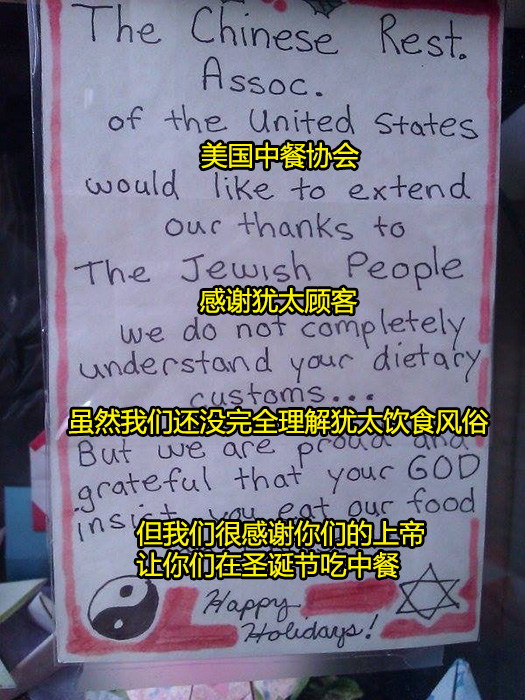 The Chinese Rest.
Assoc.
of the United States
美国中餐协会
would like to extend
our thanks to
The Jewish People
感谢犹太顾客
we do not completely
understand your dietary
customs...
虽然我们还没完全理解犹太饮食风俗
But we are proud and
grateful that your GOD
insist you eat our food
但我们很感谢你们的上帝
让你们在圣诞节吃中餐
Happy
Holidays!